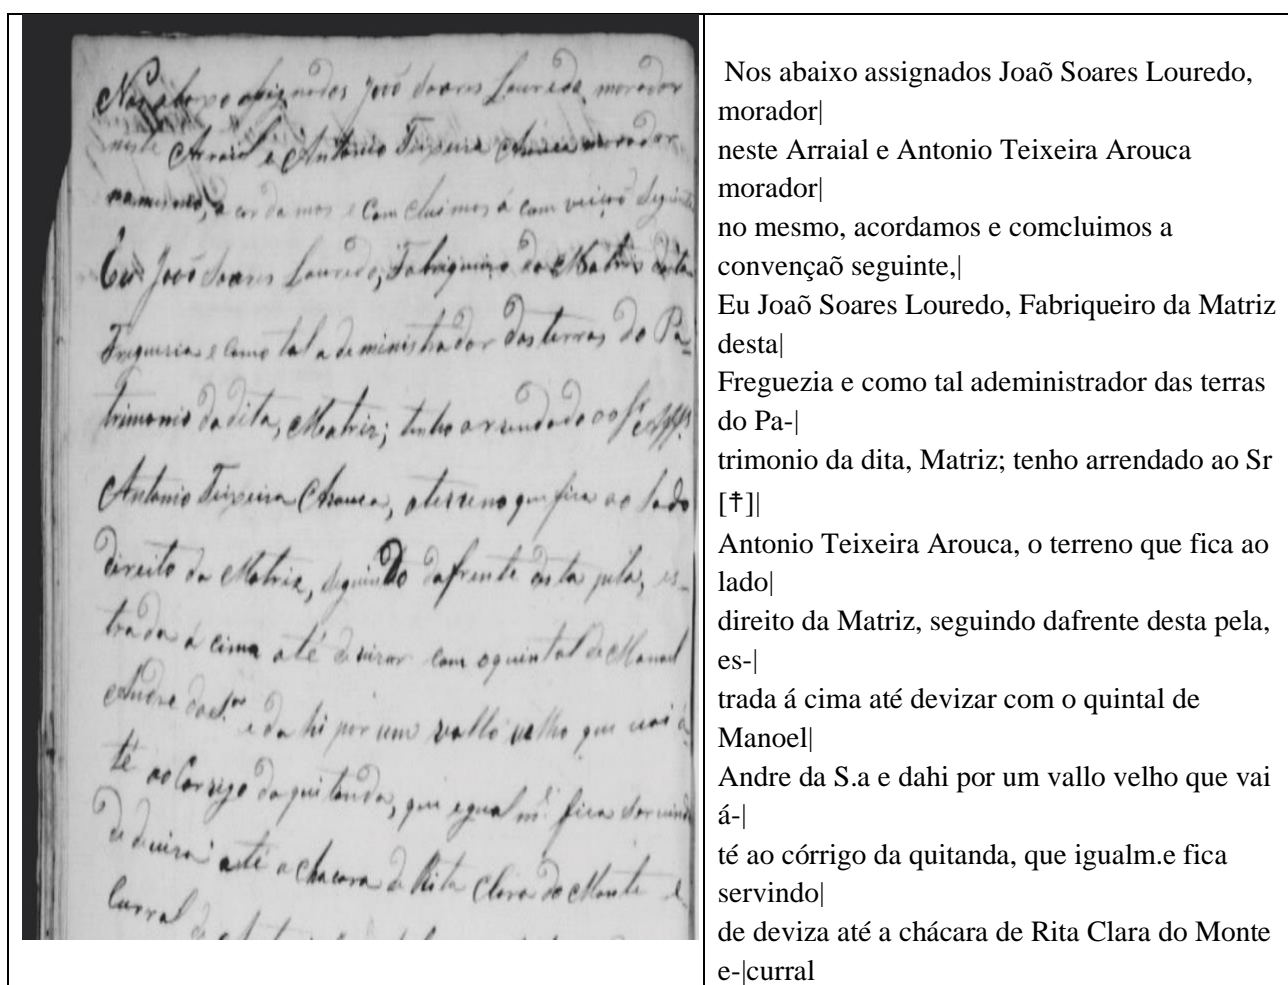 Nos abaixo assignados Joaõ Soares Louredo, morador
neste Arraial e Antonio Teixeira Arouca morador
no mesmo, acordamos e comcluimos á comvençaõ seguinte
Eu Joaõ Soares Louredo, Fabriqueiro da Matriz desta
Freguezia e como tal adeministrador das terras do Pa=
trimonio da dita, Matriz; tenho arrendado ao Sr.
Antonio Teixeira Arouca, o terreno que fica ao lado
direito da Matriz, seguindo dafrente desta pela, es-
trada á cima até devizar com oquintal de Manoel
Andre da S.a e dahi por um vallo velho que vai á-
té ao Corrigo da quitanda, que egualm.e fica servindo
de deviza até a chacara de Rita Clara do Monte e
Curral
Nos abaixo assignados Joaõ Soares Louredo,
morador|
neste Arraial e Antonio Teixeira Arouca
morador|
no mesmo, acordamos e comcluimos a
convençaõ seguinte,|
Eu Joaõ Soares Louredo, Fabriqueiro da Matriz
desta|
Freguezia e como tal adeministrador das terras
do Pa-|
trimonio da dita, Matriz; tenho arrendado ao Sr
[†]|
Antonio Teixeira Arouca, o terreno que fica ao
lado|
direito da Matriz, seguindo dafrente desta pela,
es-|
trada á cima até devizar com o quintal de
Manoel|
Andre da S.a e dahi por um vallo velho que vai
á-|
té ao córrigo da quitanda, que igualm.e fica
servindo|
de deviza até a chácara de Rita Clara do Monte
e-|curral